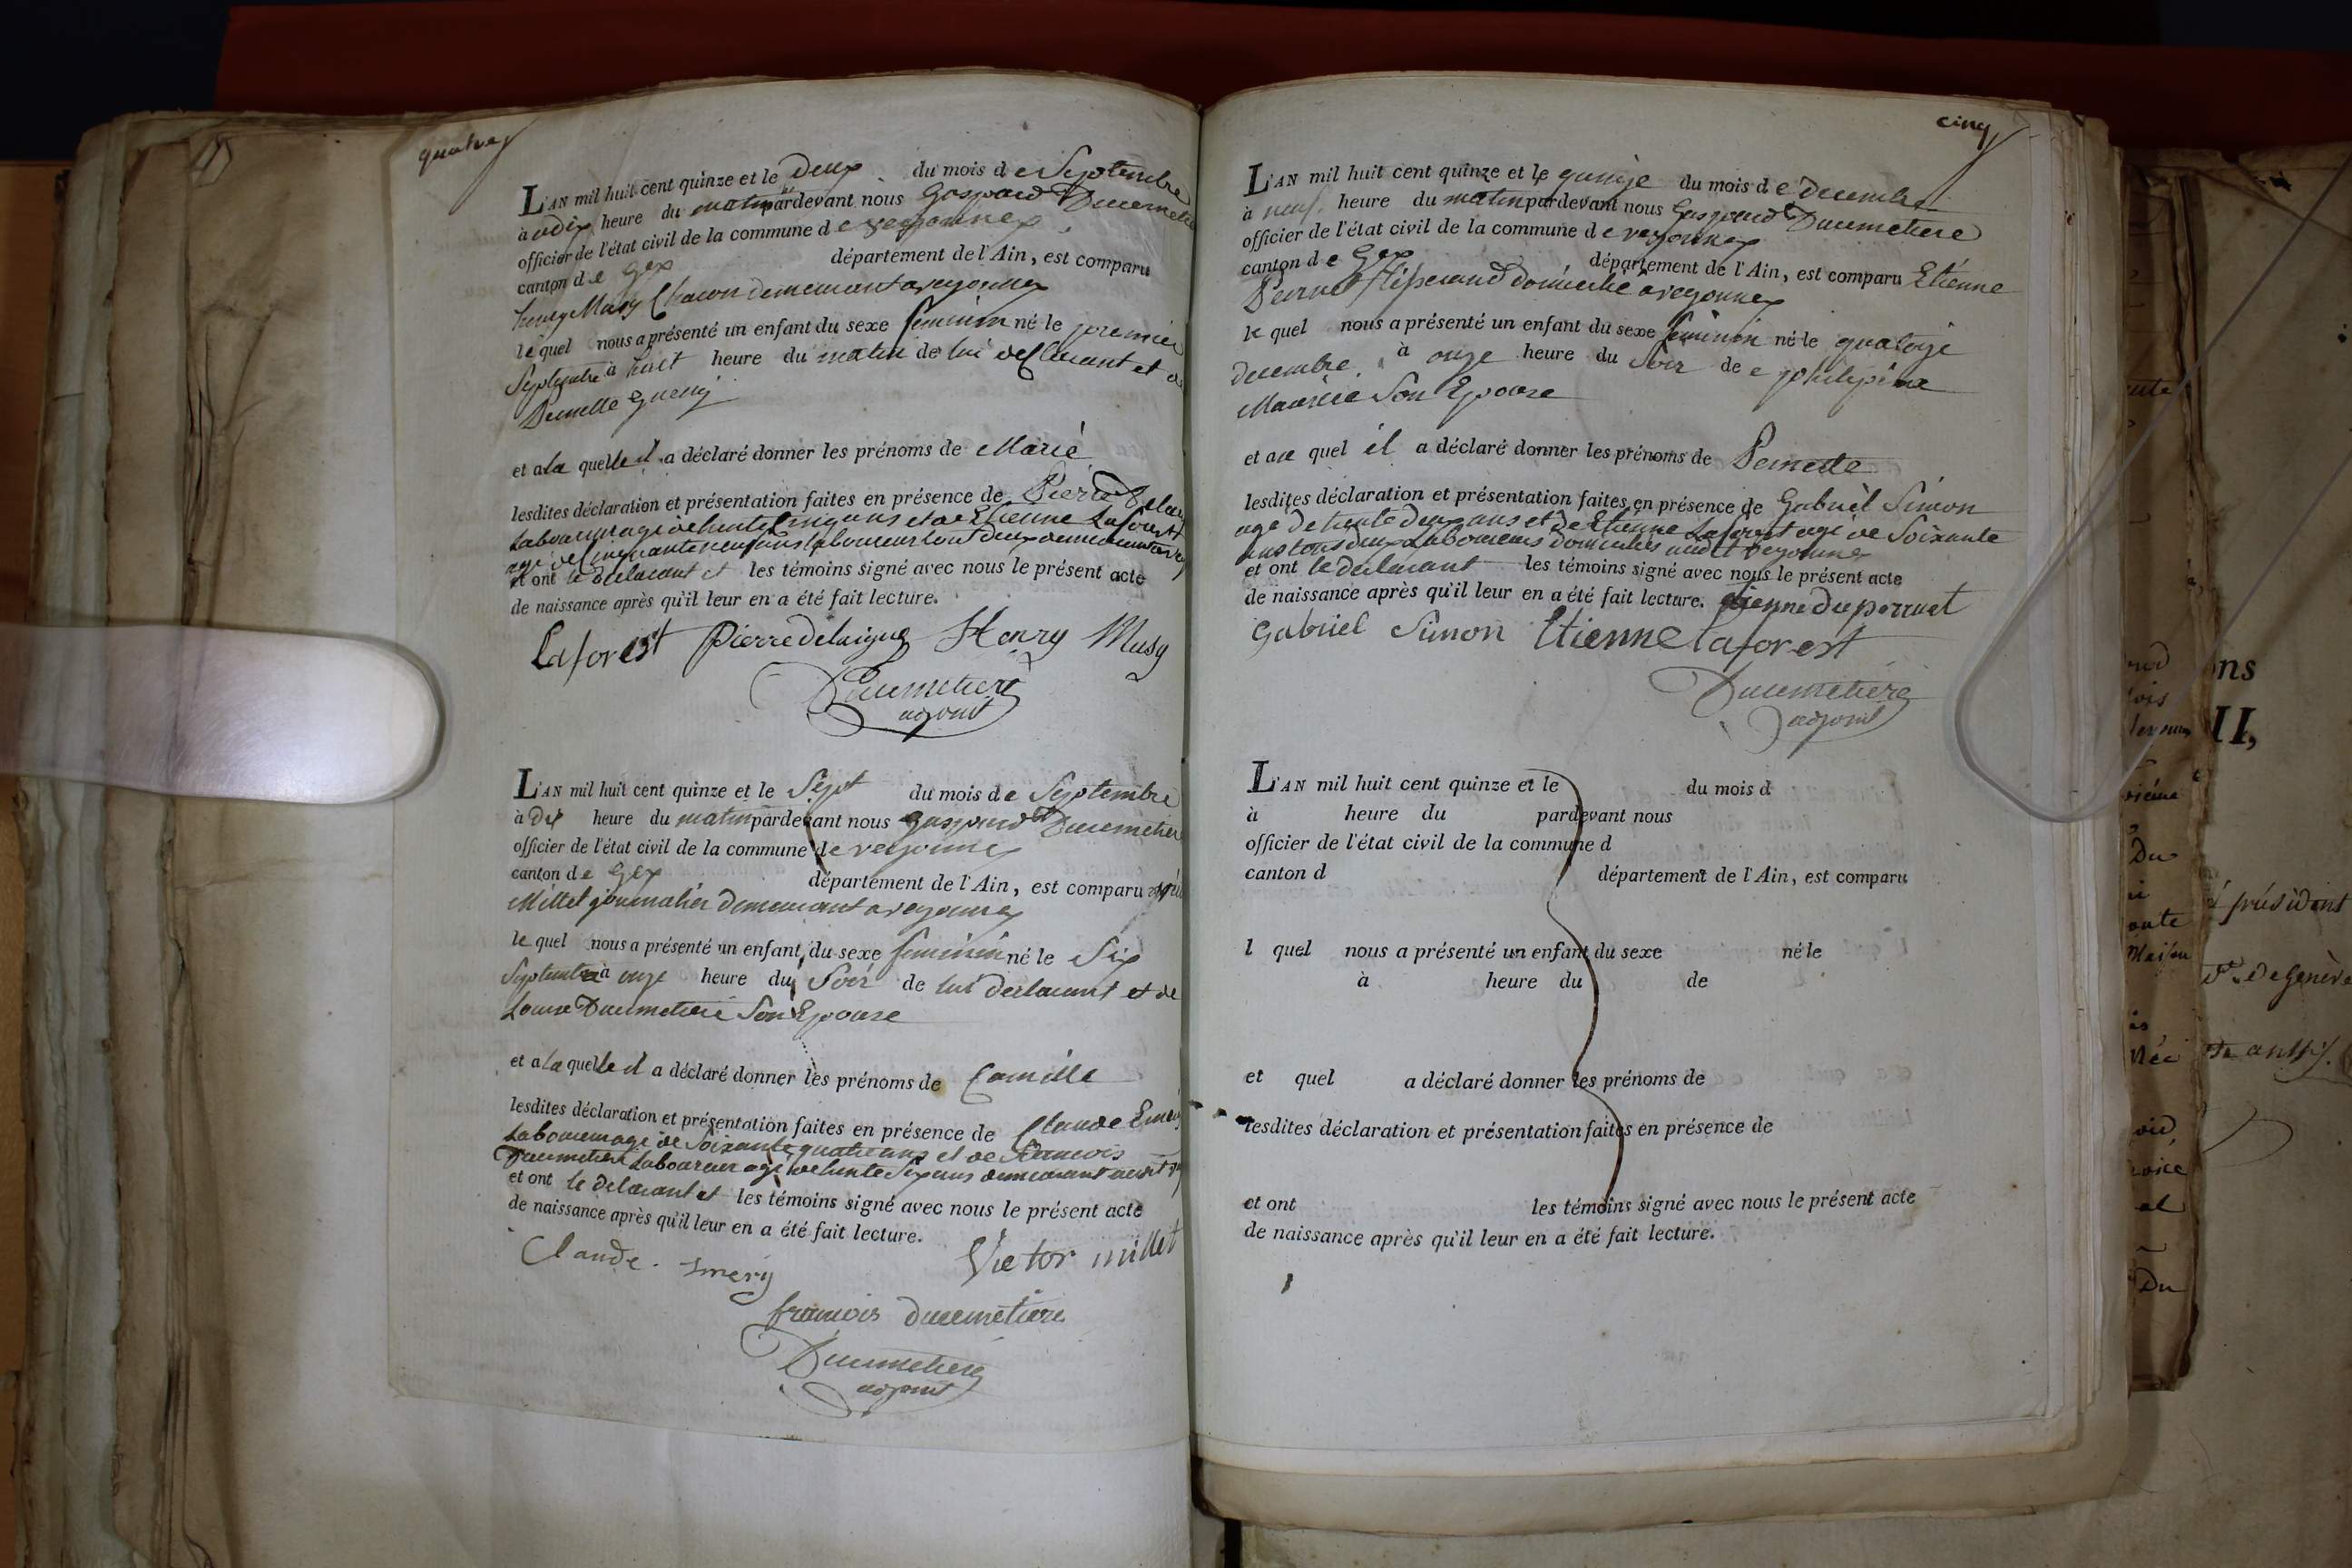 quatre
L'AN mil huit cent quinze et le Deux du mois de Septembre
à dix heure du matin pardevant nous Gaspard Ducimetiere
officier de l'état civil de la commune de veyonnex
canton de Gex département de l'Ain, est comparu
henry Musy Charon demeurant a veyonnex
le quel nous a présenté un enfant du sexe feminin né le premier
Septembre à huit heure du matin de lui declarant et de
et a la quelle il a déclaré donner les prénoms de Marie
lesdites déclaration et présentation faites en présence de Pierre Delai
Laboureur agé de trente cinq ans et de Etienne Laforest
agé de Cinquante neuf ans laboureur tout deux demeurant a vey
et ont le declarant et les témoins signé avec nous le présent acte
de naissance après qu'il leur en a été fait lecture.
Laforest Pierre delaigue Henry Musy
Ducimetiere
adjoint
L'AN mil huit cent quinze et le Sept du mois de Septembre
à Dix heure du matin pardevant nous Gaspard Ducimetier
officier de l'état civil de la commune de veyonnex
canton de Gex département de l'Ain, est comparu
Millet journalier demeurant a veyonnex
le quel nous a présenté un enfant du sexe feminin né le Six
Septembre à onze heure du Soir de lui declarant et de
Louise Ducimetiere Son Epouse
et a la quelle il a déclaré donner les prénoms de Camille
lesdites déclaration et présentation faites en présence de Claude Emery
Laboureur agé de Soixante quatre ans et de Francois
Ducimetiere Laboureur agé de trente Six ans demeurant audit v
et ont le delarant et les témoins signé avec nous le présent acte
de naissance après qu'il leur en a été fait lecture.
Claude Emery Victor millet
francois ducimetiere
Ducimetiere
adjoint
cinq
L'AN mil huit cent quinze et le quinze du mois de decembre
à neuf heure du matin pardevant nous Gaspard Ducimetiere
officier de l'état civil de la commune de veyonnex
canton de Gex département de l'Ain, est comparu Etienne
domicilié a veyonnex
le quel nous a présenté un enfant du sexe feminin né le quatorze
decembre à onze heure du Soir de e philipine
Son Epouse
et au quel il a déclaré donner les prénoms de Pernette
lesdites déclaration et présentation faites en présence de Gabriel Simon
agé de trente deux ans et de Etienne Laforest agé de Soixante
ans tous deux Laboureurs domiciliés audit veyonnex
et ont le declarant les témoins signé avec nous le présent acte
de naissance après qu'il leur en a été fait lecture. etienne duperruet
Gabriel Simon Etienne laforest
Ducimetiere
adjoint
L'AN mil huit cent quinze et le du mois d
à heure du pardevant nous
officier de l'état civil de la commune d
canton d département de l'Ain, est comparu
l quel nous a présenté un enfant du sexe né le
à heure du de
et quel a déclaré donner les prénoms de
lesdites déclaration et présentation faites en présence de
et ont les témoins signé avec nous le présent acte
de naissance après qu'il leur en a été fait lecture.
ons
II,
président
de Genève